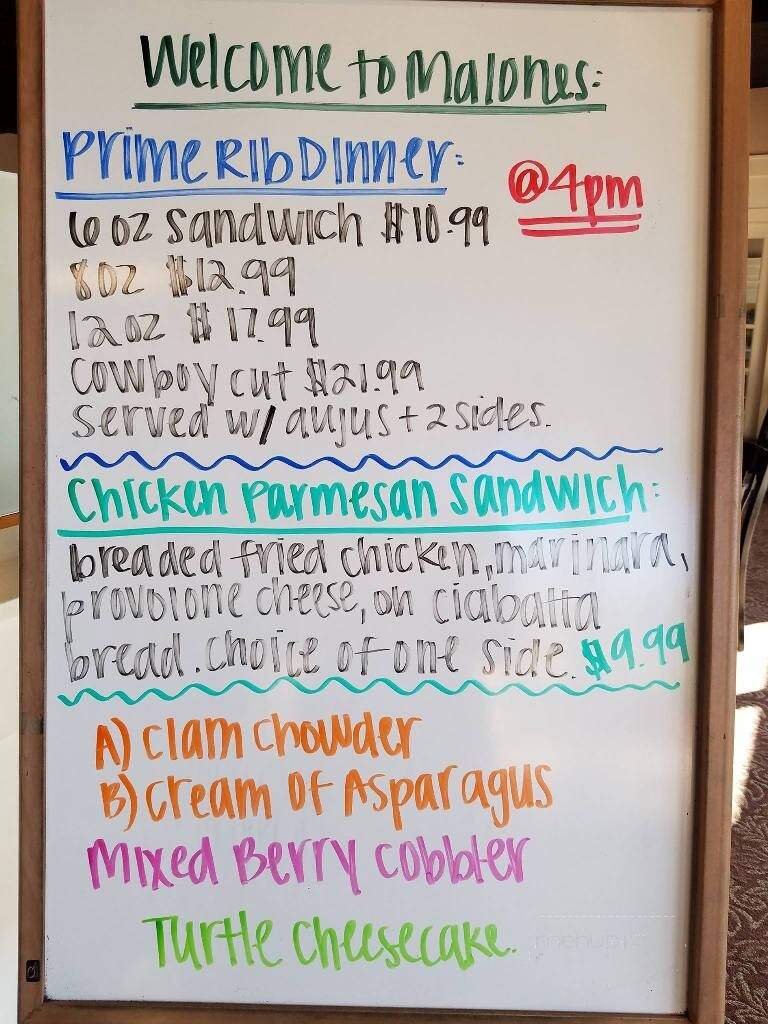 Welcome to Malones:
Prime Rib Dinner:
@4pm
6 oz sandwich $10.99
8oz $12.99
12oz $17.99
Cowboy cut $21.99
served w/ aujus + 2 sides.
Chicken Parmesan Sandwich:
breaded fried chicken, marinara,
provolone cheese, on ciabatta
bread. choice of one side. $9.99
A) Clam Chowder
B) Cream Of Asparagus
Mixed Berry Cobbler
Turtle Cheesecake.